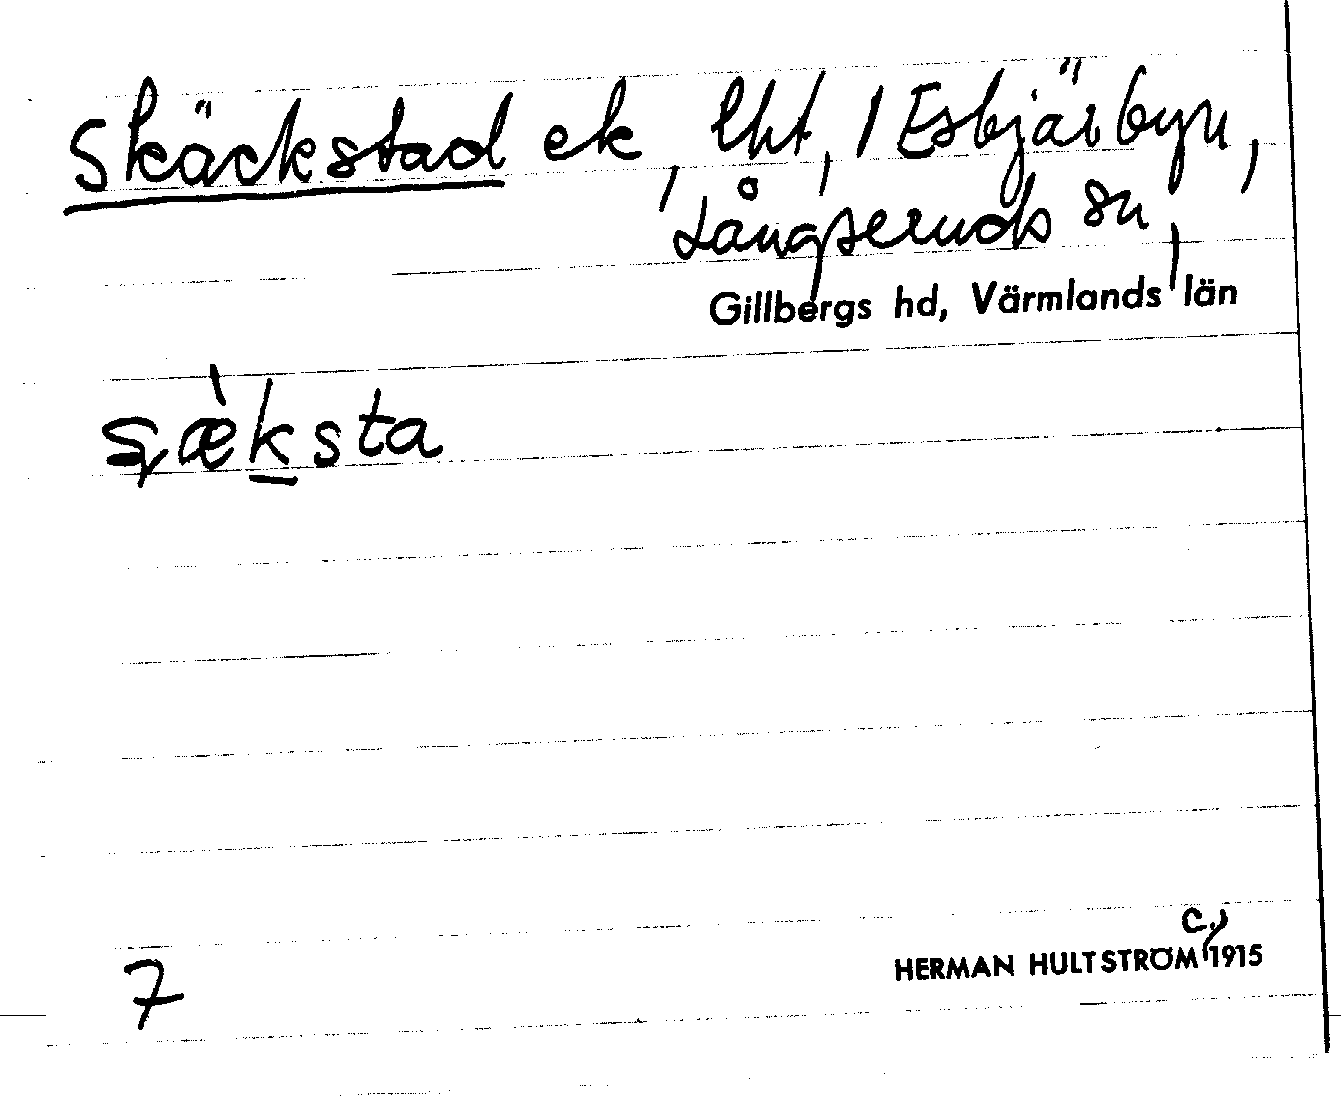 Skäckstad ek, lht, 1 Esbjärbyn,
Långseruds sn,
Gillbergs hd, Värmlands län
ʂæ̀k̲sta
7
c.
HERMAN HULTSTRÖM, 1915